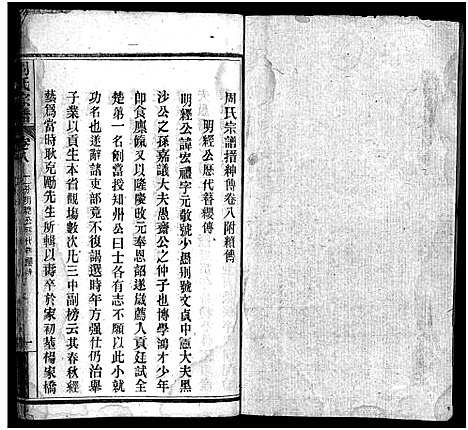 周氏宗譜搢紳傳卷八附續傳
明經公歷代簪纓傳
明經公諱宏禮字元敬號少愚別號文貞中憲大夫黑
沙公之孫嘉議大夫愚齋公之仲子也博學鴻才少年
即食廩餼又以隆慶改元奉恩詔遂歲薦人貢廷試全
楚第一名創當授知州公曰士各有志不願以此小就
功名也遂辭諸吏部竟不復謁選時年方强仕仍治舉
子業以貢生本省觀場數次凡三中副榜云其春秋經
藝爲當時耿克勵先生所輯以壽卒於家初墓楊家橋
周氏宗譜
卷八